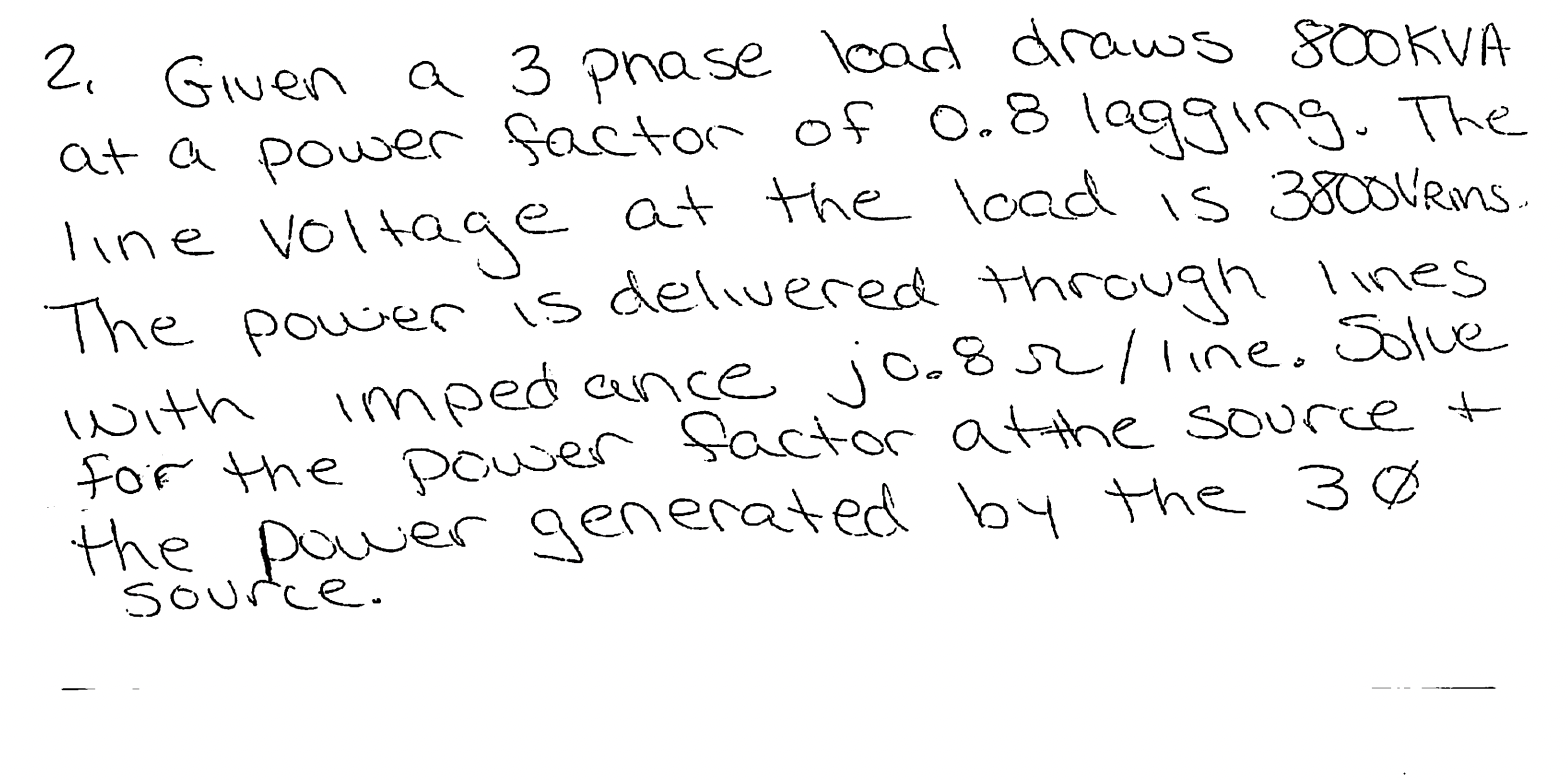 2. Given a 3 phase load draws 800KVA
at a power factor of 0.8 lagging. The
line voltage at the load is 3800VRms.
The power is delivered through lines
with impedance j0.8Ω/line. Solve
for the power factor at the source +
the power generated by the 3Ø
source.